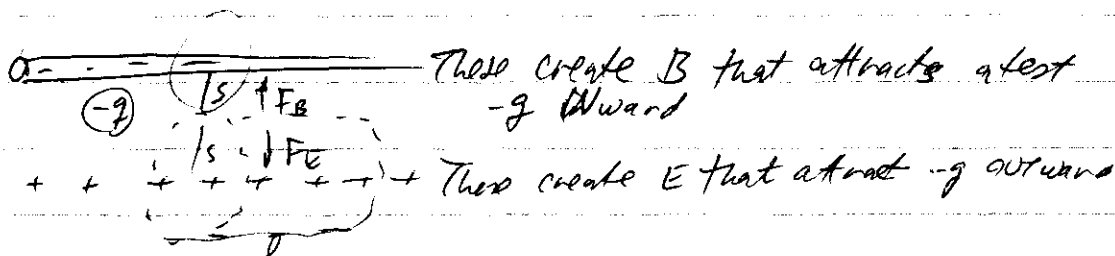 - . - - These create B that attracts a test
-q INward
-q
S F_B
S F_E
+ + + + + + + + These create E that attract -q outward